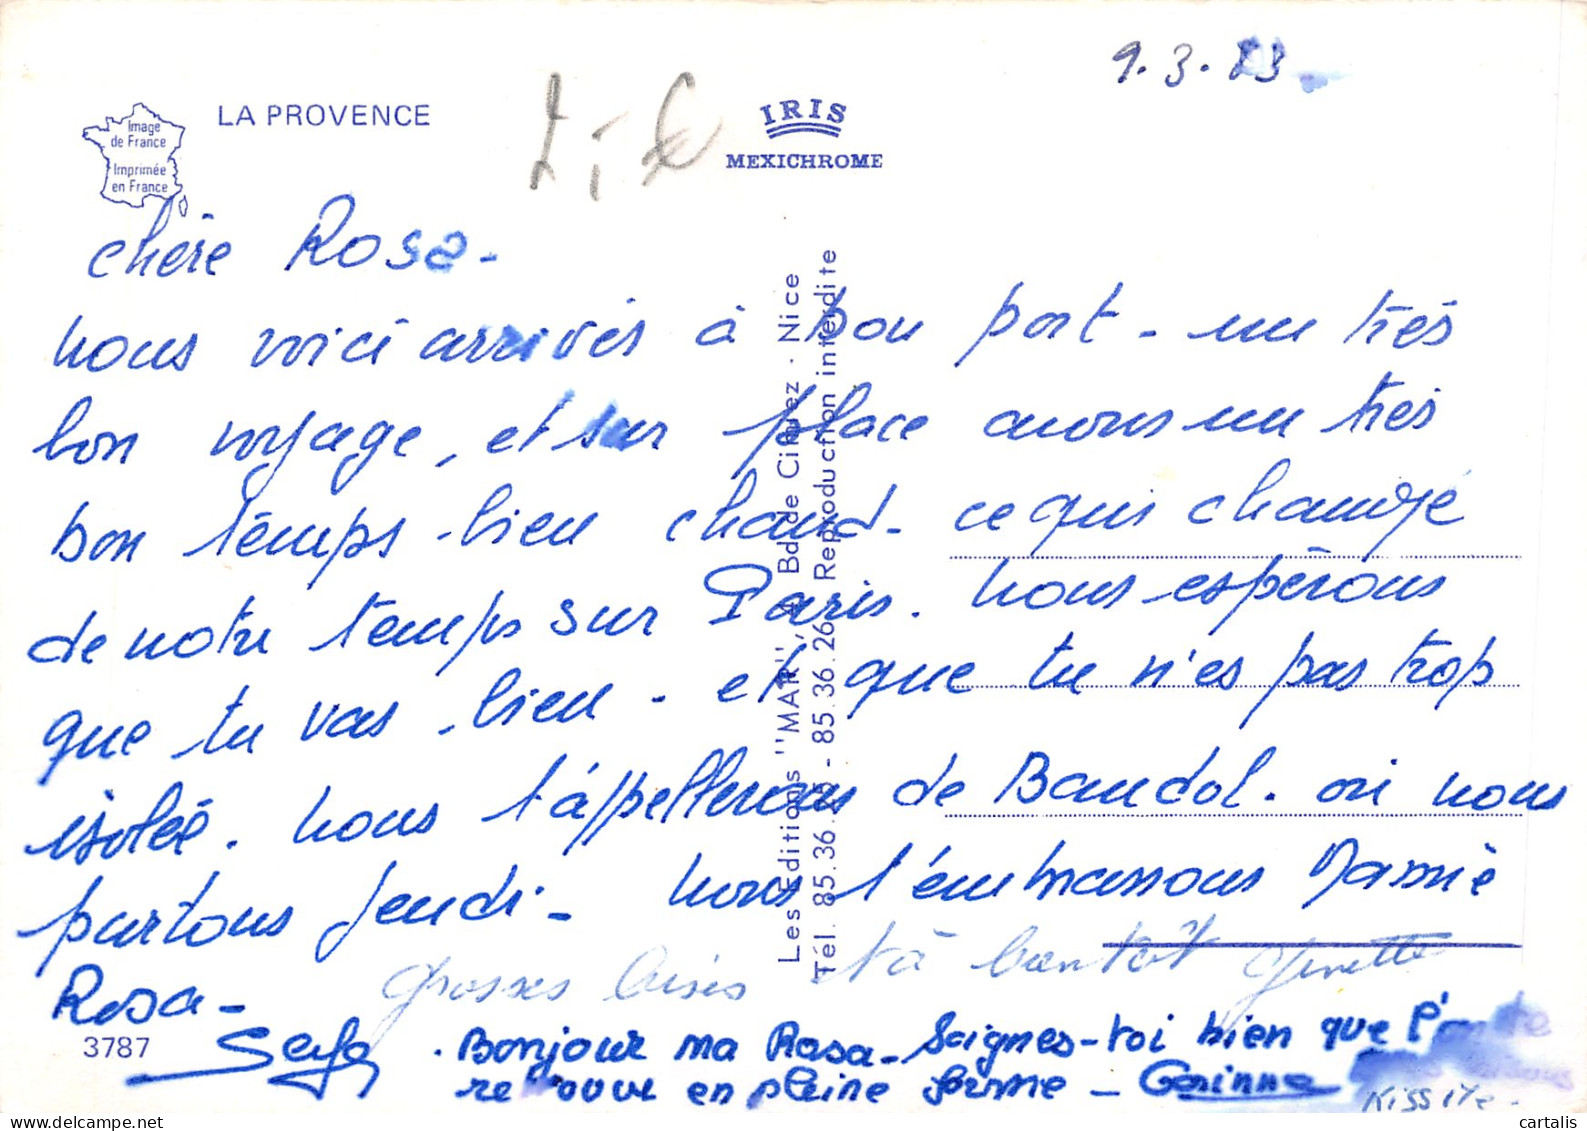 9.3.83
LA PROVENCE
Image
de France
Imprimée
en France
IRIS
MEXICHROME
chère Rosa -
nous voici arrivés à bon port - un très
bon voyage, et sur place avons un très
bon temps - bien chaud - ce qui change
de notre temps sur Paris. nous espérons
que tu vas bien - et que tu n'es pas trop
isolée. nous t'appellerons de Bandol. où nous
partons jeudi - nous t'embrassons Mamie
Rosa -
grosses bises à bientôt Ginette
Serge
3787
. Bonjour ma Rosa - Soignes-toi bien que l'on te
retrouve en pleine forme - Corinne
Les Editions "MAR", Bd de Nice
Tél. 85.36. - 85.36.26 Reproduction interdite
cartalis